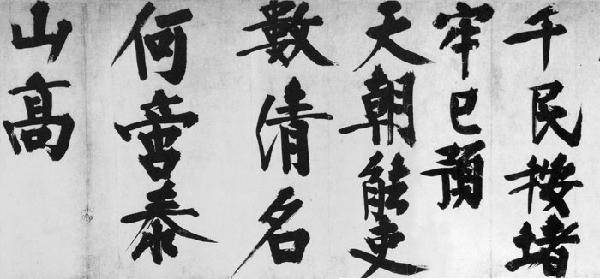 千民按堵
牢已預
天朝能吏
數清名
何啻泰
山高